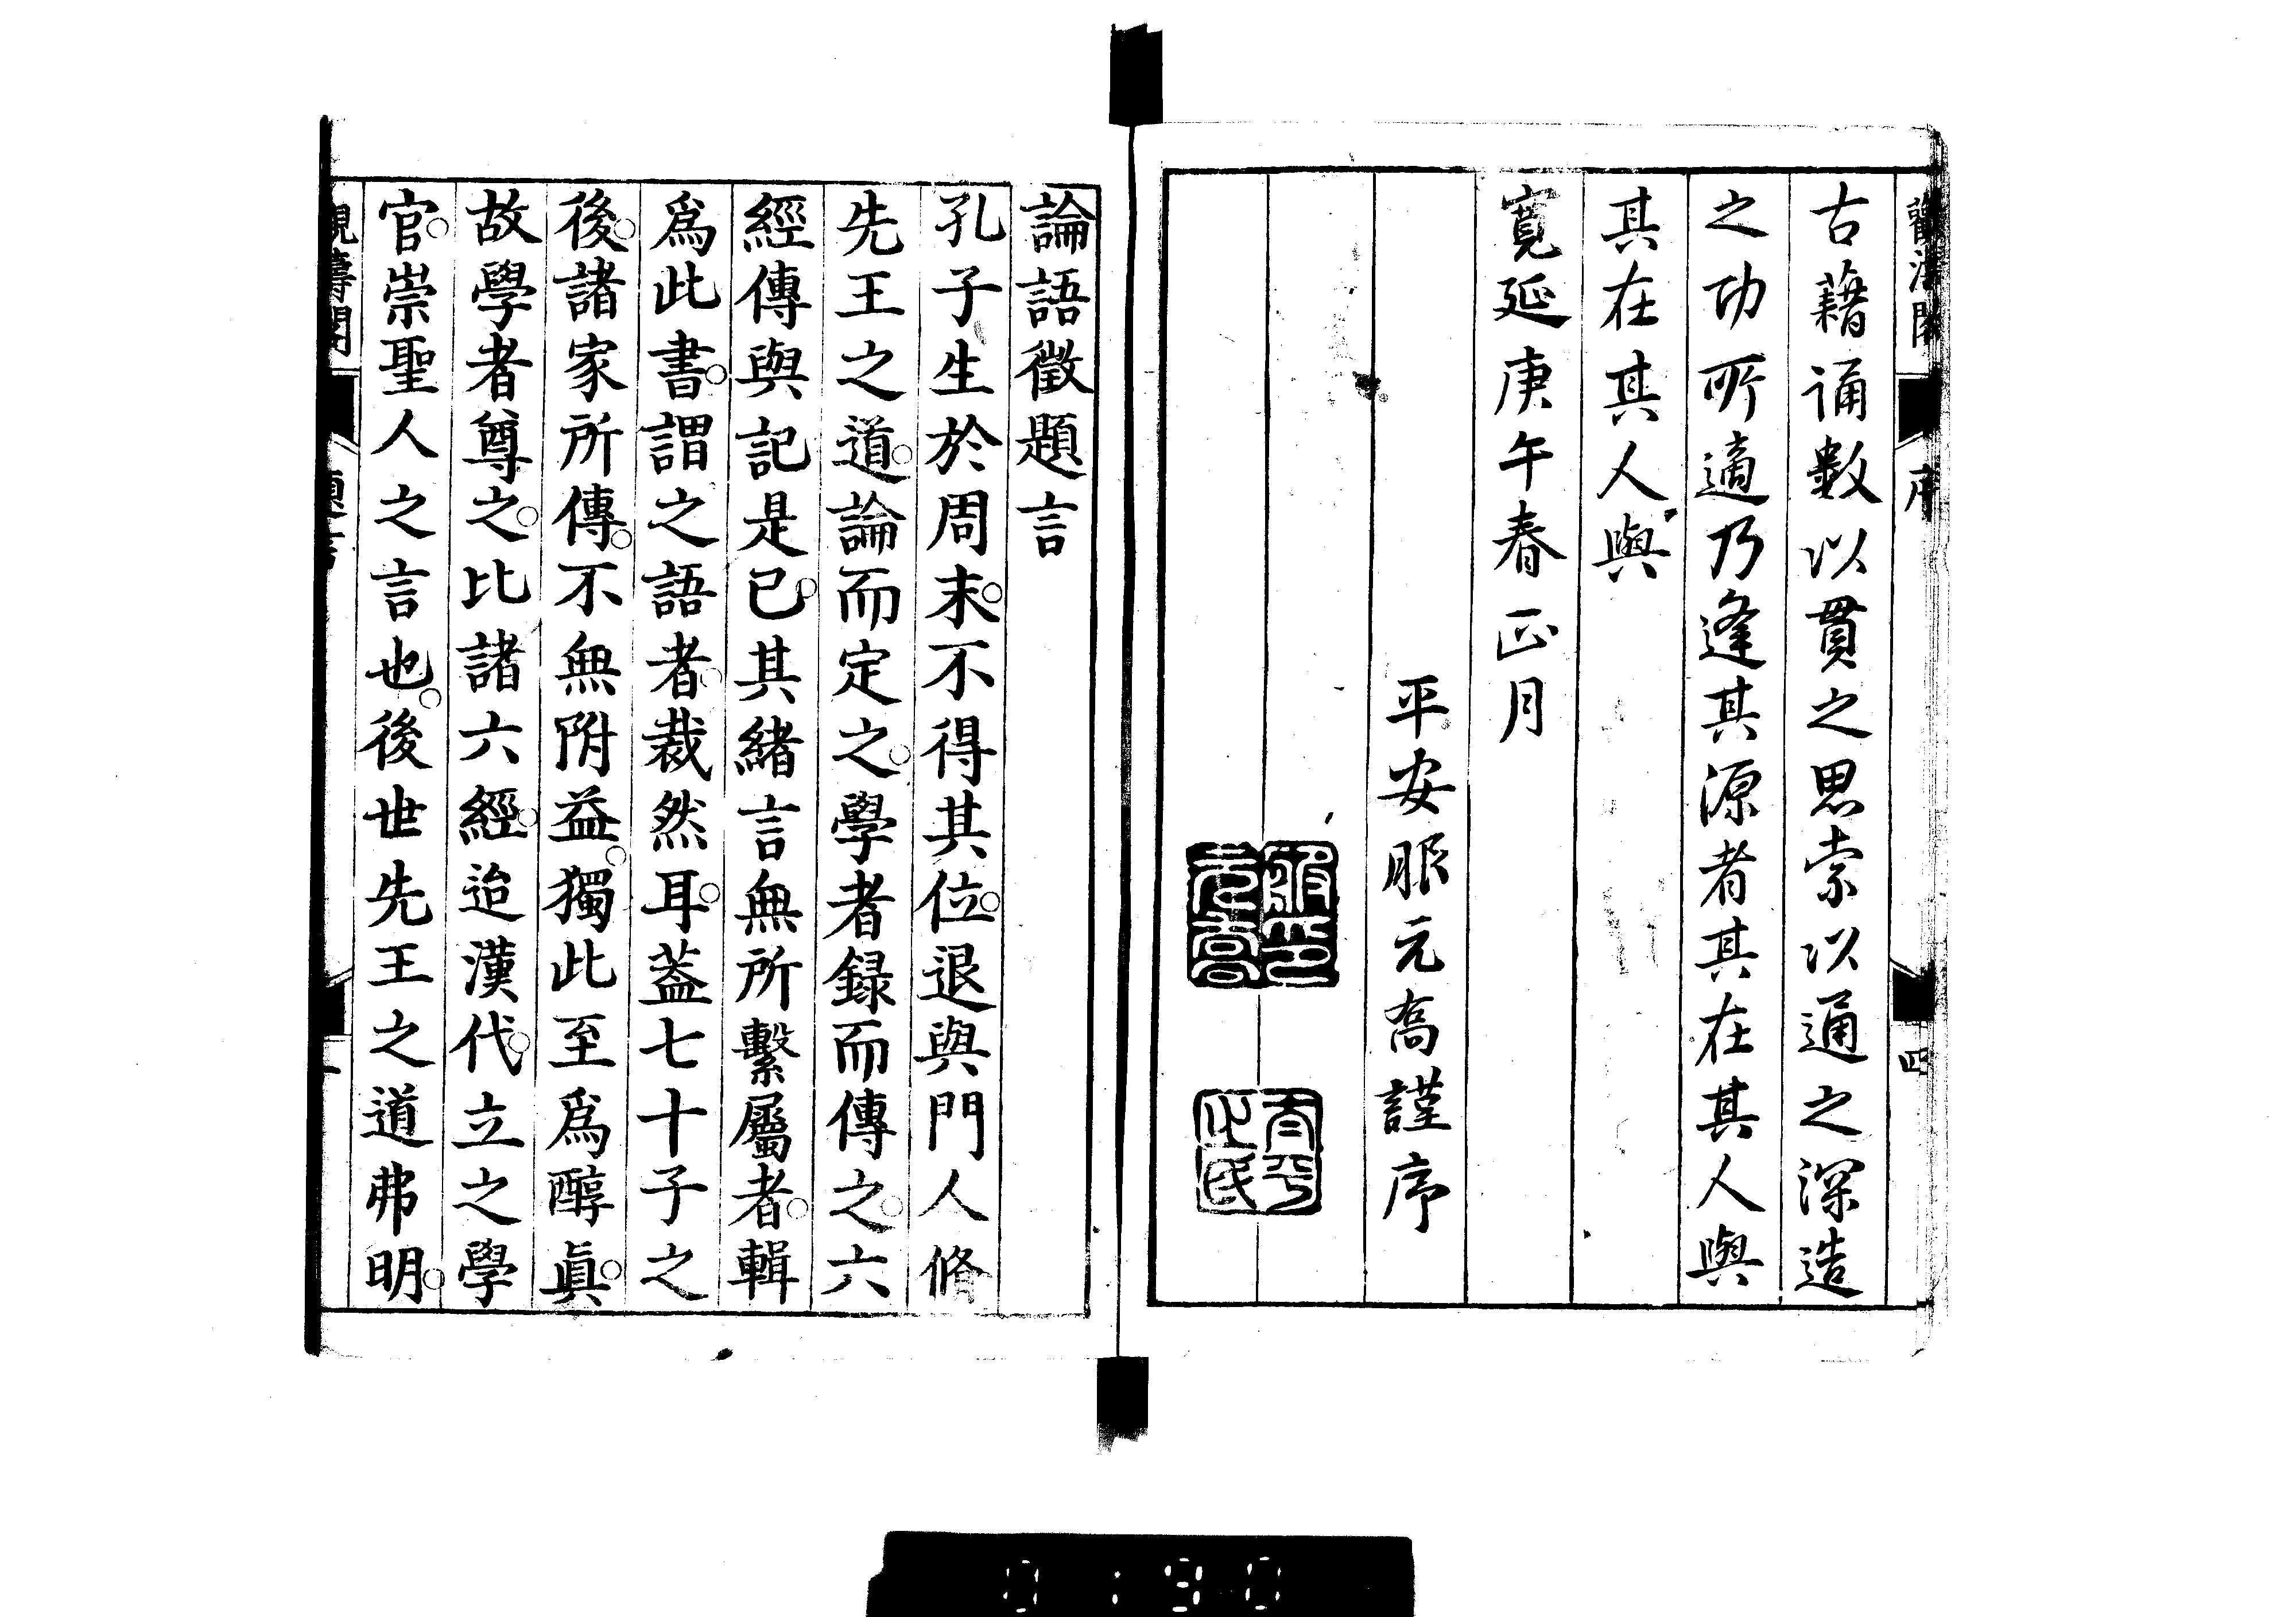 古藉誦數以貫之思索以通之深造
之功所適乃逢其源者其在其人與
其在其人與
寬延庚午春正月
平安服元喬謹序
序
四
論語徵題言
孔子生於周末不得其位退與門人脩
先王之道論而定之學者録而傳之六
經傳與記是已其緒言無所繫屬者輯
爲此書謂之語者裁然耳蓋七十子之
後諸家所傳不無附益獨此至爲醇眞
故學者尊之比諸六經迨漢代立之學
官崇聖人之言也後世先王之道弗明
題言